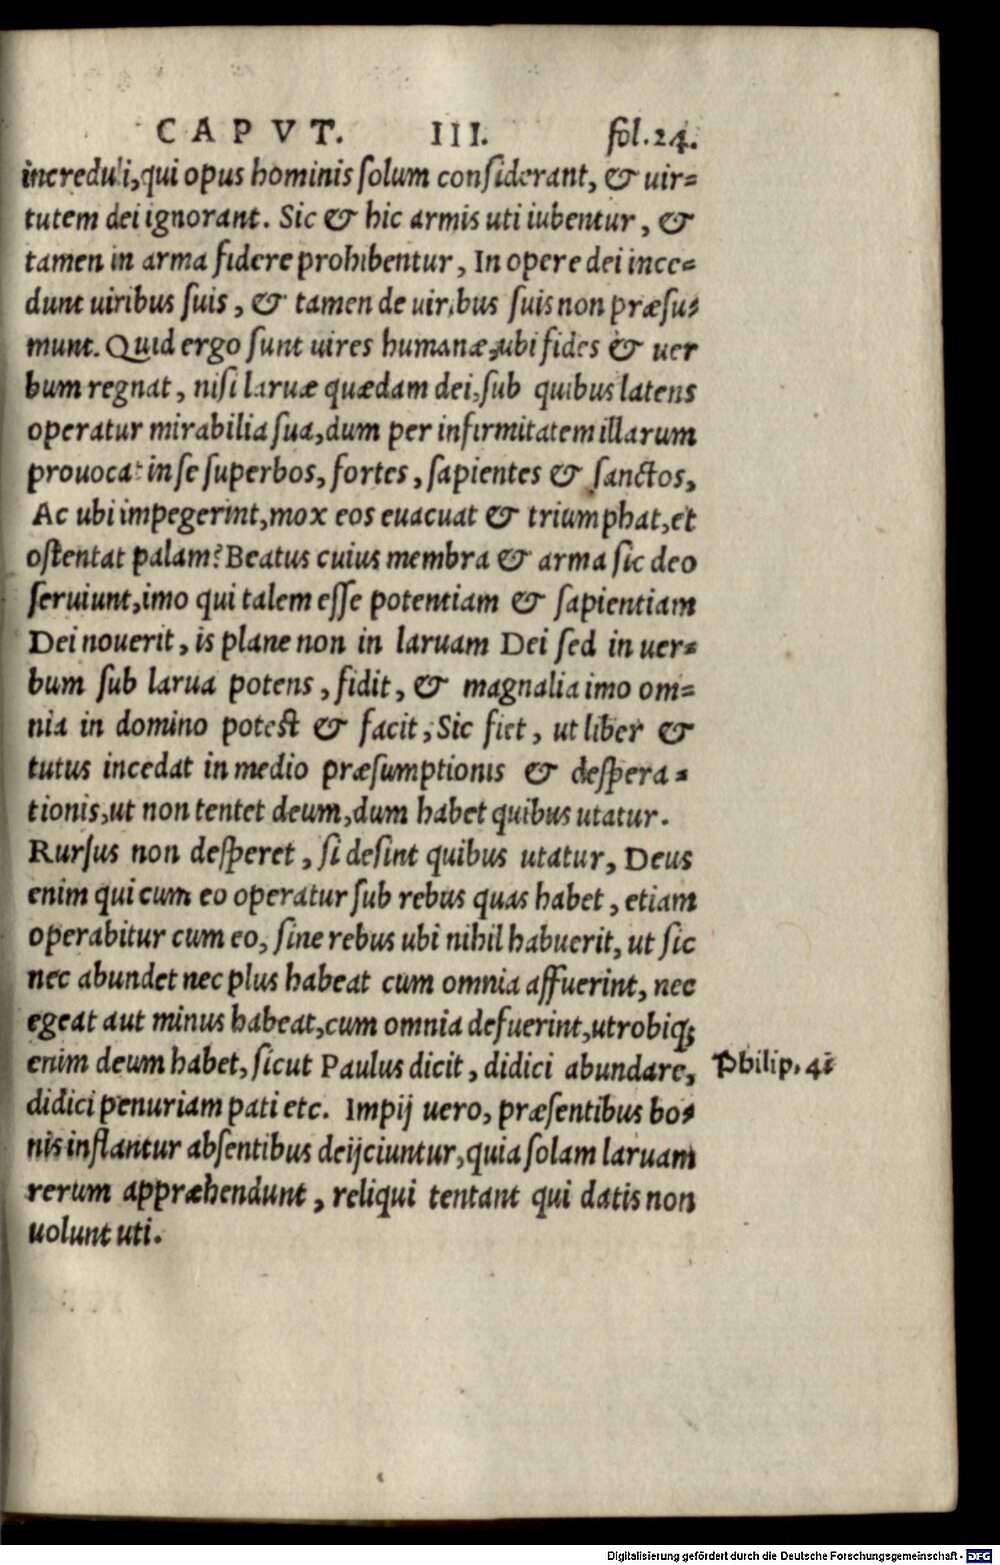 CAPVT. III. fol.24.
increduli,qui opus hominis solum considerant, & uir-
tutem dei ignorant. Sic & hic armis uti iubentur, &
tamen in arma fidere prohibentur, In opere dei ince-
dunt uiribus suis, & tamen de uiribus suis non præsu-
munt. Quid ergo sunt uires humanæ,ubi fides & uer
bum regnat, nisi laruæ quædam dei,sub quibus latens
operatur mirabilia sua,dum per infirmitatem illarum
prouocat in se superbos, fortes, sapientes & sanctos,
Ac ubi impegerint,mox eos euacuat & triumphat,et
ostentat palam? Beatus cuius membra & arma sic deo
seruiunt,imo qui talem esse potentiam & sapientiam
Dei nouerit, is plane non in laruam Dei sed in uer-
bum sub larua potens, fidit, & magnalia imo om-
nia in domino potest & facit, Sic fiet, ut liber &
tutus incedat in medio præsumptionis & despera-
tionis,ut non tentet deum,dum habet quibus utatur.
Rursus non desperet, si desint quibus utatur, Deus
enim qui cum eo operatur sub rebus quas habet, etiam
operabitur cum eo, sine rebus ubi nihil habuerit, ut sic
nec abundet nec plus habeat cum omnia affuerint, nec
egeat aut minus habeat,cum omnia defuerint,utrobiq;
enim deum habet, sicut Paulus dicit, didici abundare,
Philip. 4.
didici penuriam pati etc. Impij uero, præsentibus bo-
nis inflantur absentibus deijciuntur,quia solam laruam
rerum appræhendunt, reliqui tentant qui datis non
uolunt uti.
Digitalisierung gefördert durch die Deutsche Forschungsgemeinschaft - DFG